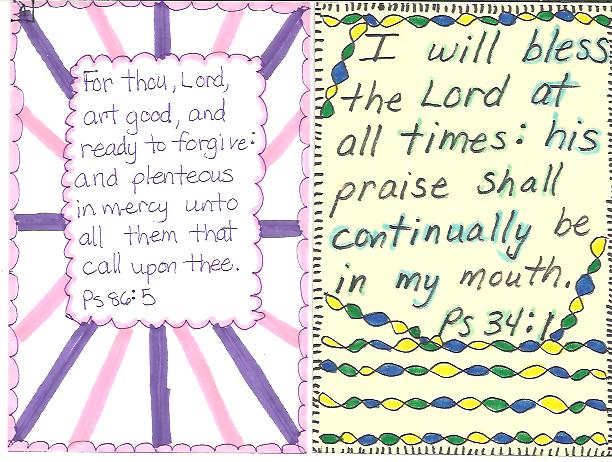 For thou, Lord,
art good, and
ready to forgive:
and plenteous
in mercy unto
all them that
call upon thee.
Ps 86:5
I will bless
the Lord at
all times: his
praise shall
continually be
in my mouth.
Ps 34:1